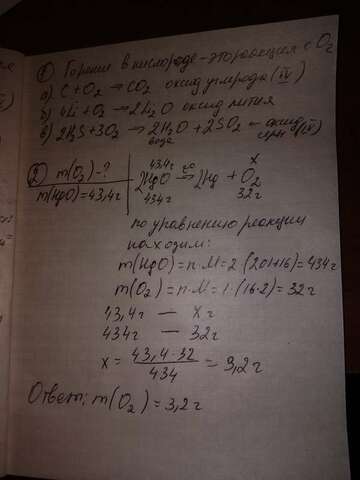 1) Горение в кислороде - это реакция с O₂
а) C + O₂ → CO₂ оксид углерода (IV)
б) 4Li + O₂ → 2Li₂O оксид лития
в) 2H₂S + 3O₂ → 2H₂O + 2SO₂ - оксид
вода серы (IV)
2) m(O₂) - ?
m(HgO) = 43,4г
43,4г t° x
2HgO → 2Hg + O₂
434г 32г
по уравнению реакции
находим:
m(HgO) = n·M = 2·(201+16) = 434г
m(O₂) = n·M = 1·(16·2) = 32г
43,4г — x г
434г — 32г
x = 43,4·32 / 434 = 3,2г
Ответ: m(O₂) = 3,2г